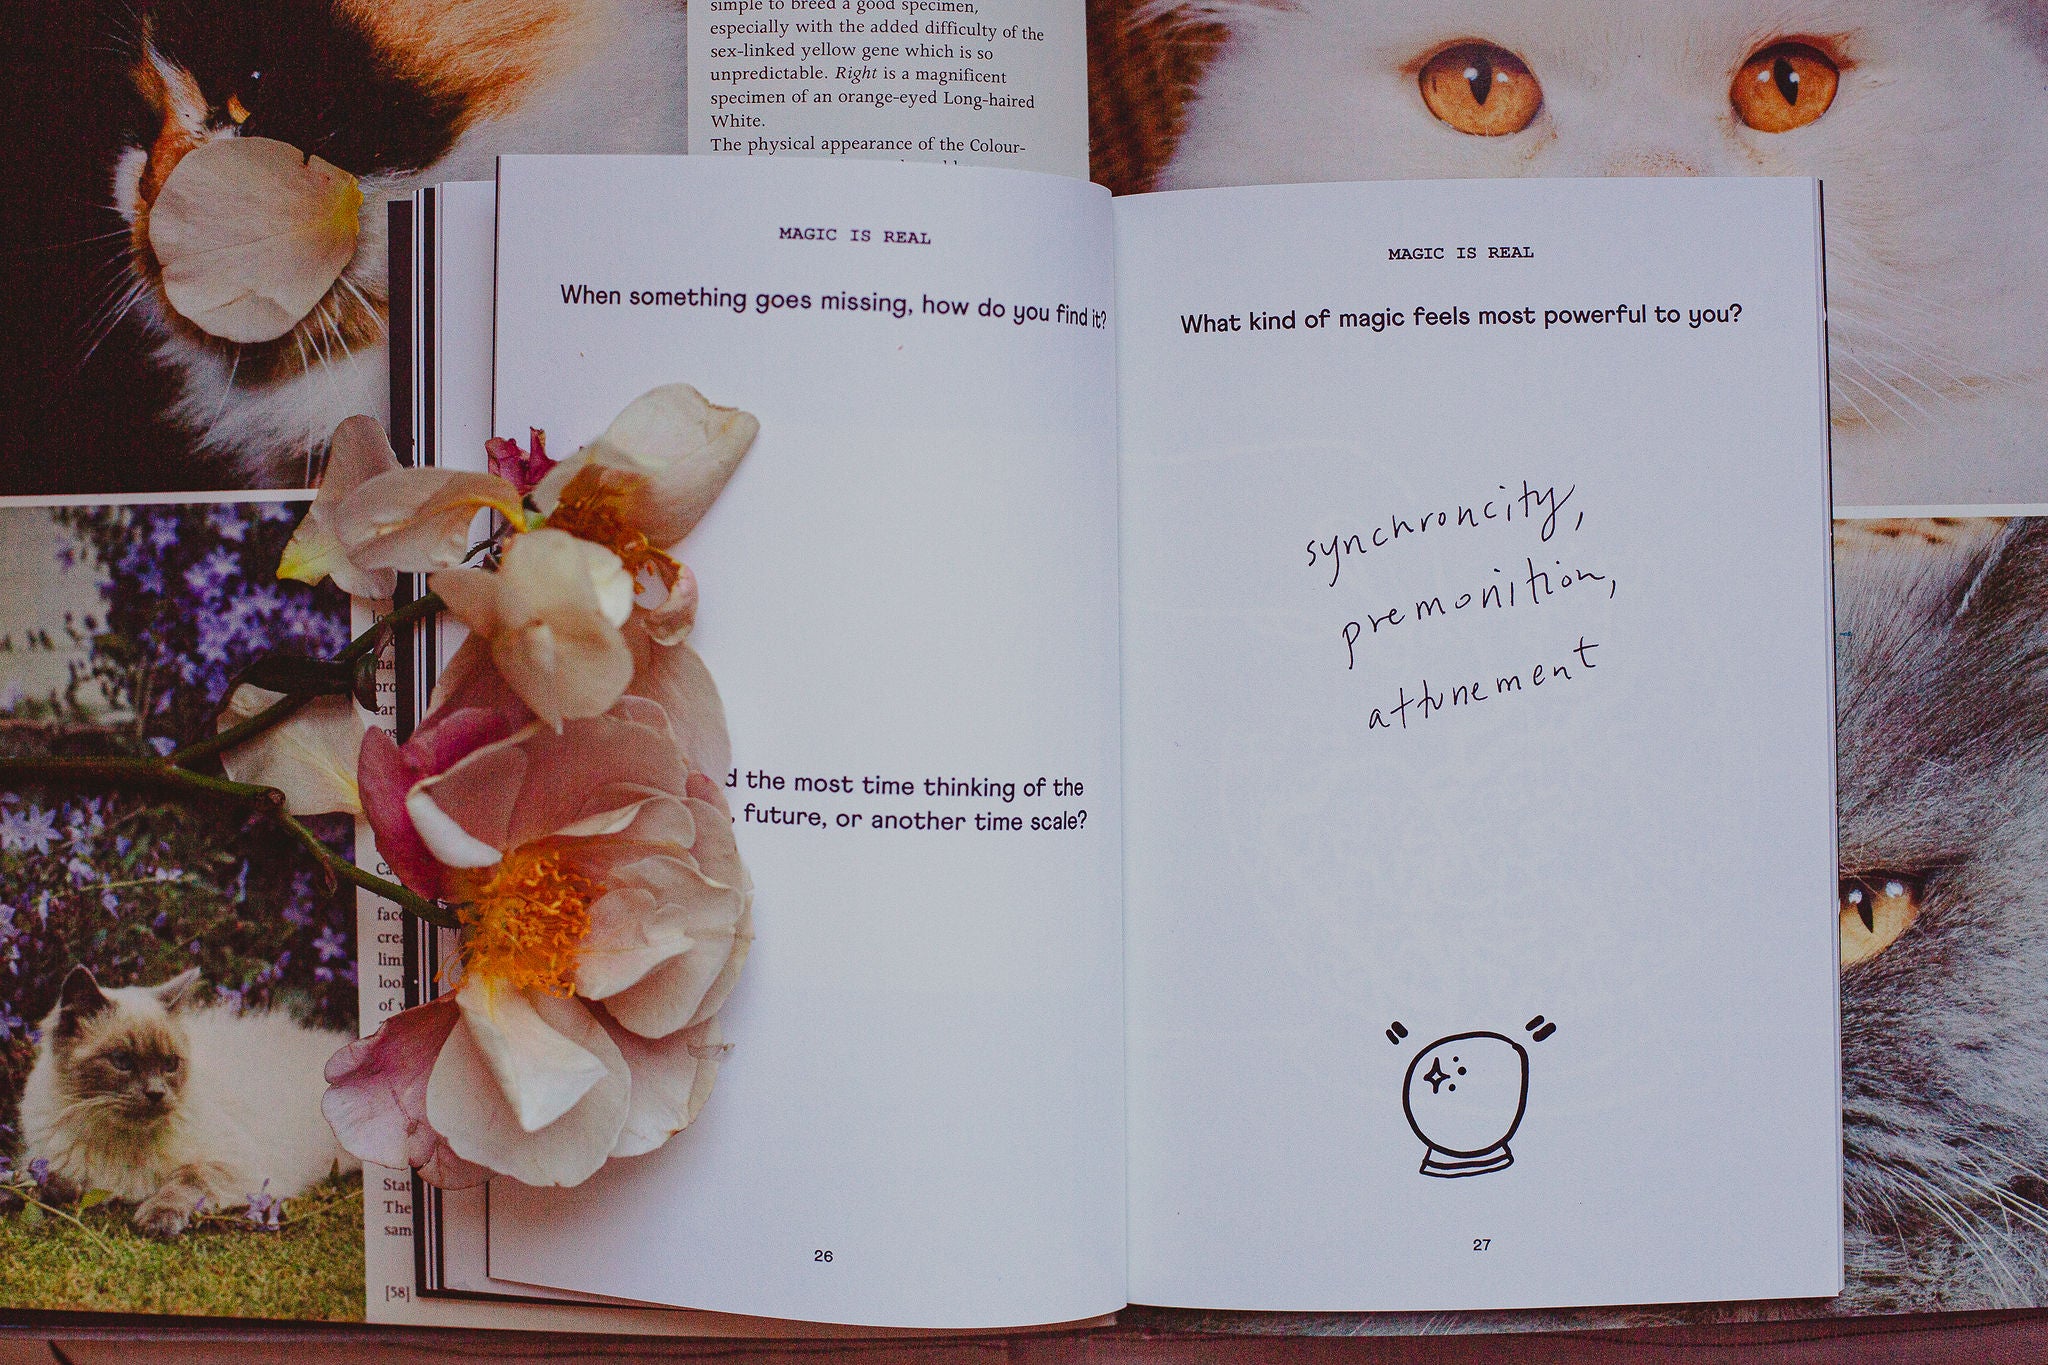 simple to breed a good specimen,
especially with the added difficulty of the
sex-linked yellow gene which is so
unpredictable. Right is a magnificent
specimen of an orange-eyed Long-haired
White.
The physical appearance of the Colour-
MAGIC IS REAL
When something goes missing, how do you find it?
the most time thinking of the
, future, or another time scale?
26
MAGIC IS REAL
What kind of magic feels most powerful to you?
synchroncity,
premonition,
attunement
27
face
limi
look
of
Stat
The
sam
[58]